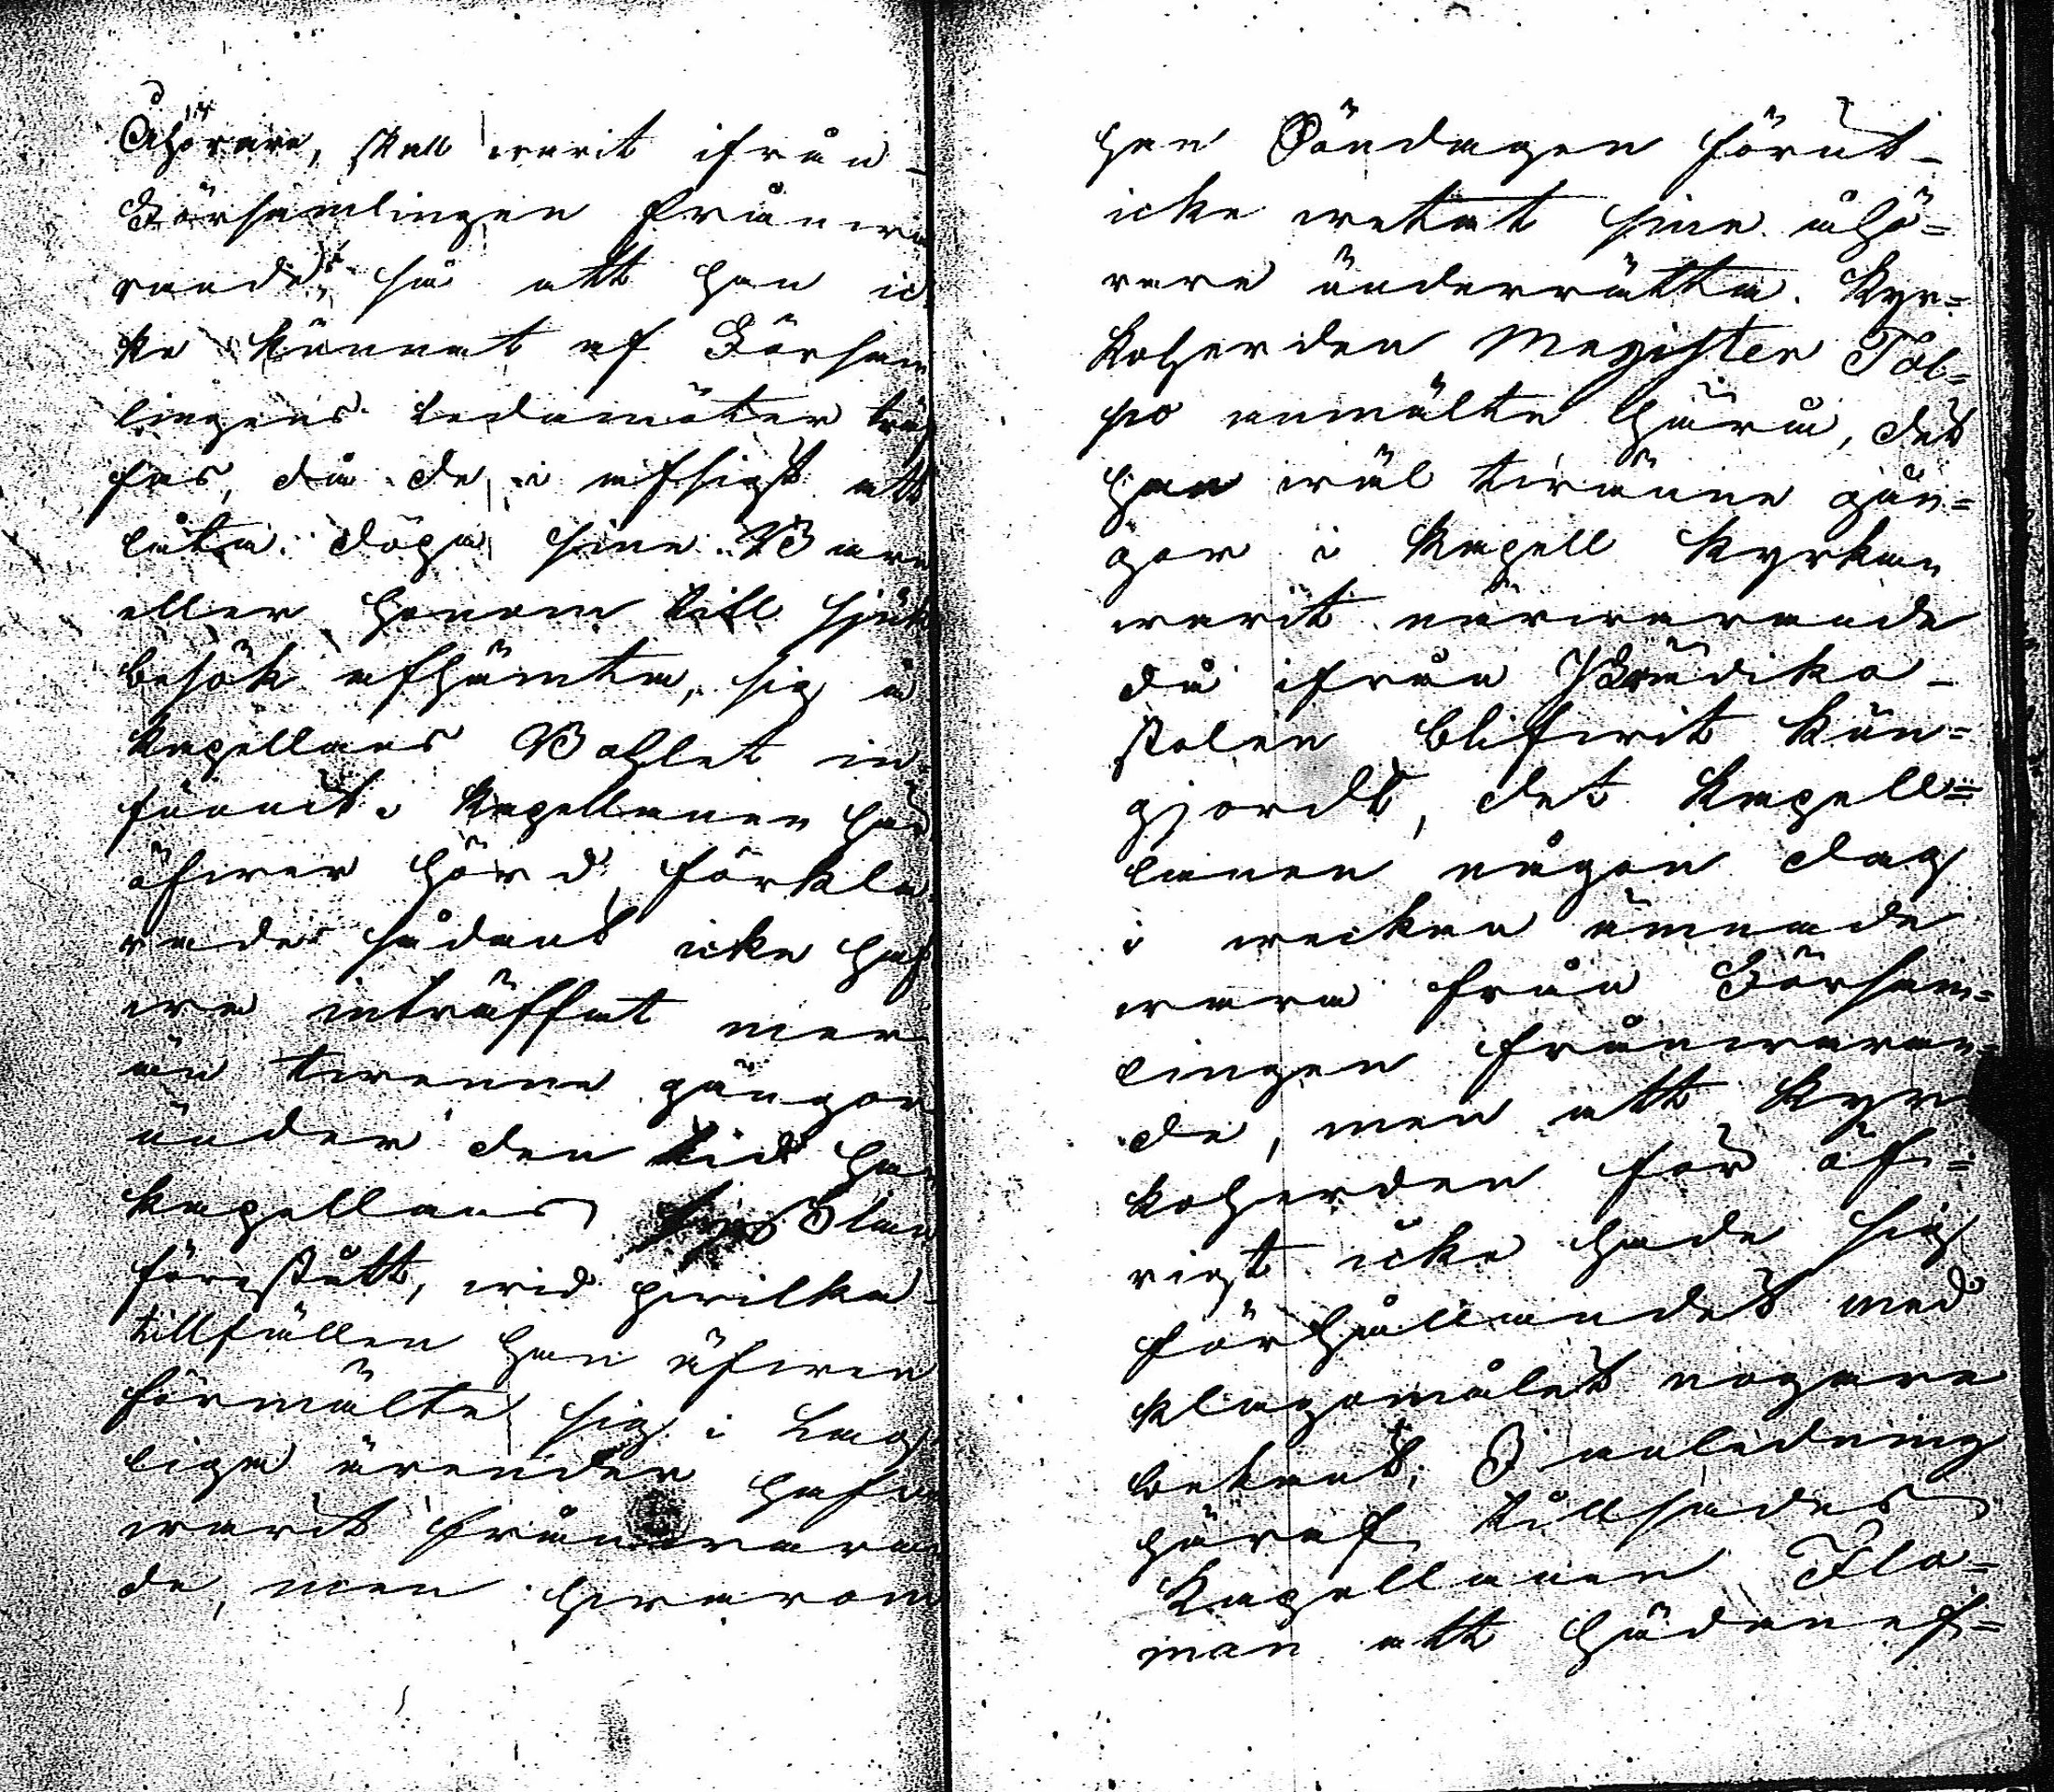 Åhörare, skall warit ifrån
Församlingen frånwa
rande, så att han ic
ke kunnat af Försam
lingens Ledamöter träf
fas, då de i afsigt att
låta döpa sine Barn
eller honom till sjuk
besök afhämta, sig å
kapellans Bohlet in
funnit. Kapellanen här
öfwer hörd, förkla
rade sådant icke haf
wa inträffat mer
än twenne gångor
under den tid han
kapellans
förestått, wid hwilka
tillfällen han äfwen
förmälte sig i Lag
liga ärender hafwa
warit frånwaran
de, men hwarom
han Söndagen förut
icke welat sine åhö=
rare underrätta. Kyr=
koherden Magister Tol=
po anmälte härå, det
han wäl twänne gån=
gor i Kapell Kyrkan
warit närwarande
då ifrån Prediko-
stolen blifwit kun=
gjordt, det Kapell=
lanen någon dag
i weckan ämnade
wara från Försam=
lingen frånwaran=
de, men att Kyr
koherden för öf=
rigt icke hade sig
förhållandet med
klagomålet nogare
bekant; I anledning
häraf tillsades
Kapellanen Flo=
man att hädanef=